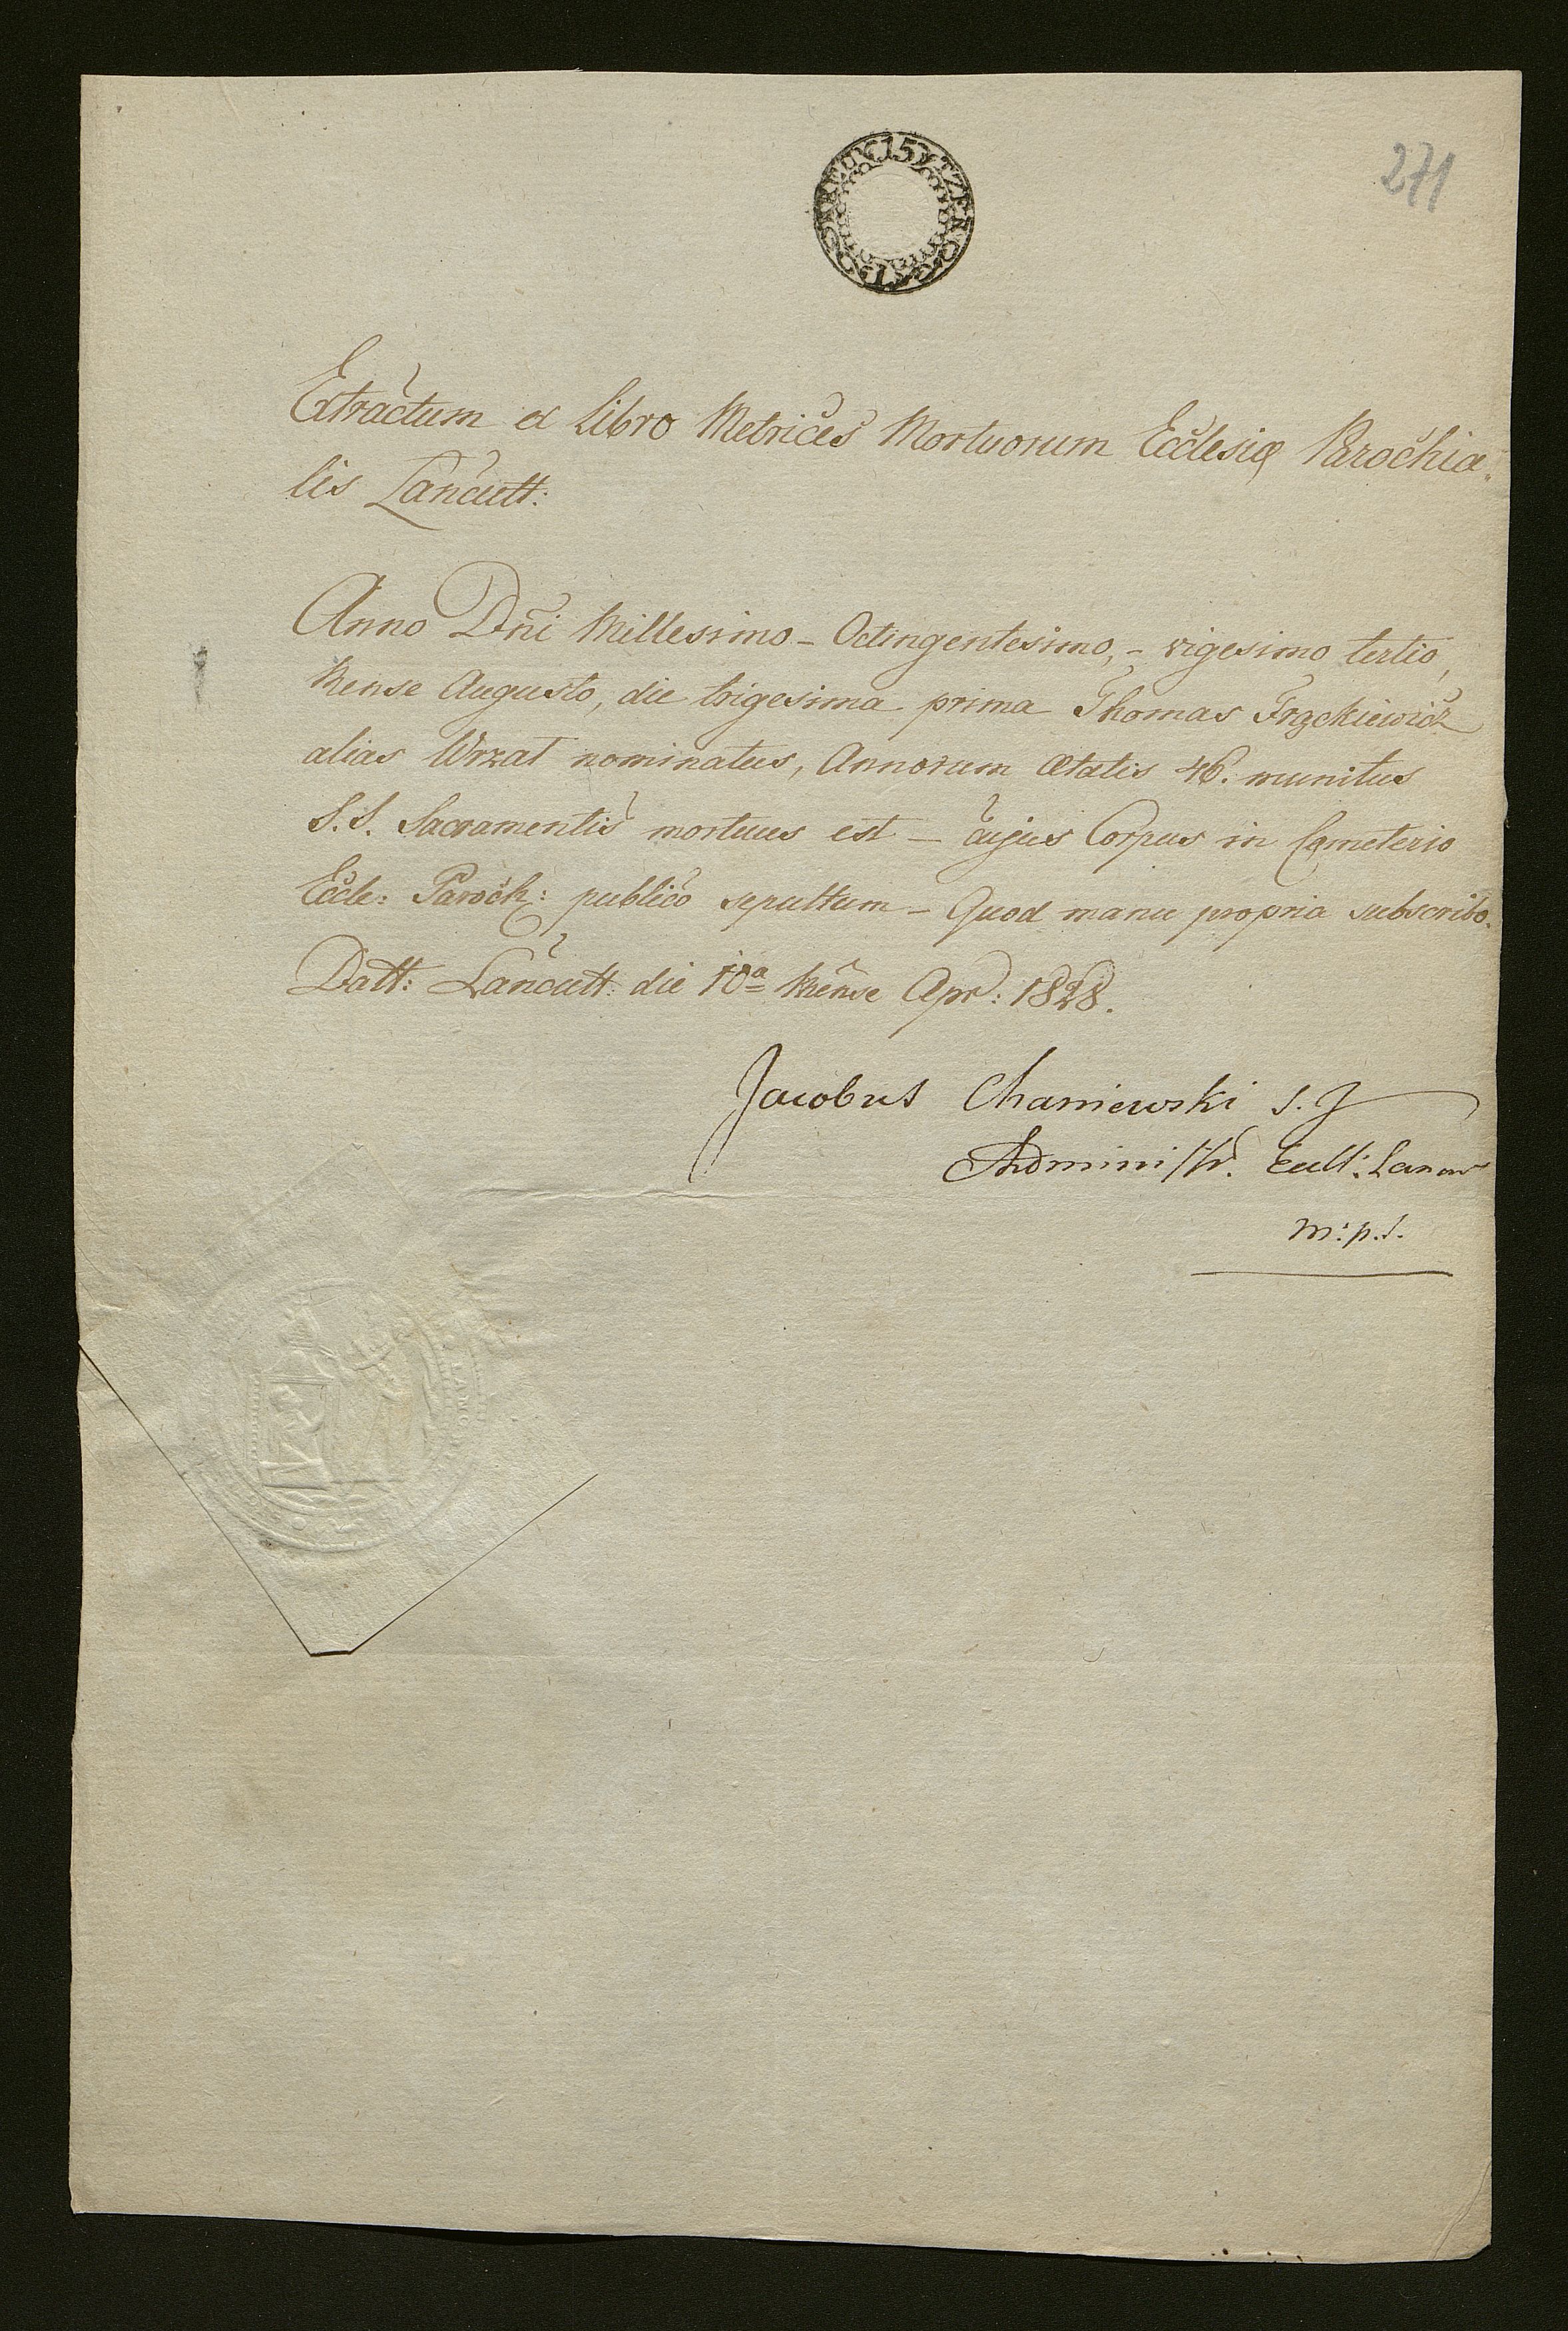 271
15
Extractum ex Libro Metrices Mortuorum Ecclesiæ Parochia„
lis Lancutt:
Anno Dñi Millesimo – Octingentesimo, – vigesimo tertio,
Mense Augusto, die trigesima prima Thomas Frąckiewicz
alias Wrzat nominatus, Annorum Ætatis 46. munitus
S.S. Sacramentis mortuus est – cujus Corpus in Cœmeterio
Eccle: Paroch: publico sepultum – Quod manu propria subscribo.
Datt: Lancutt: die 10ª Mense Apr: 1828.
Jacobus Chaniewski S.J
Administr. Eccl:
m:p.s.